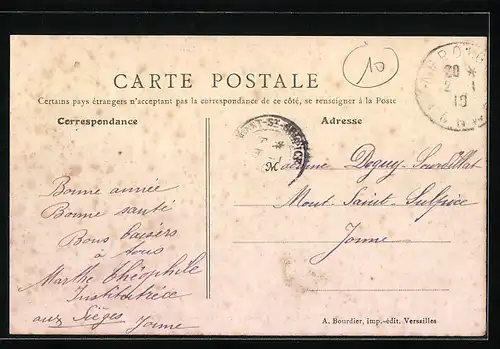 10
CARTE POSTALE
Certains pays étrangers n'acceptant pas la correspondance de ce côté, se renseigner à la Poste
Correspondance
Adresse
Bonne année
Bonne santé
Bons baisers
à tous
Marthe Théophile
Institutrice
aux Sièges Yonne
Madame Doguy-
Mont-Saint-Sulpice
Yonne
A. Bourdier, imp.-édit. Versailles